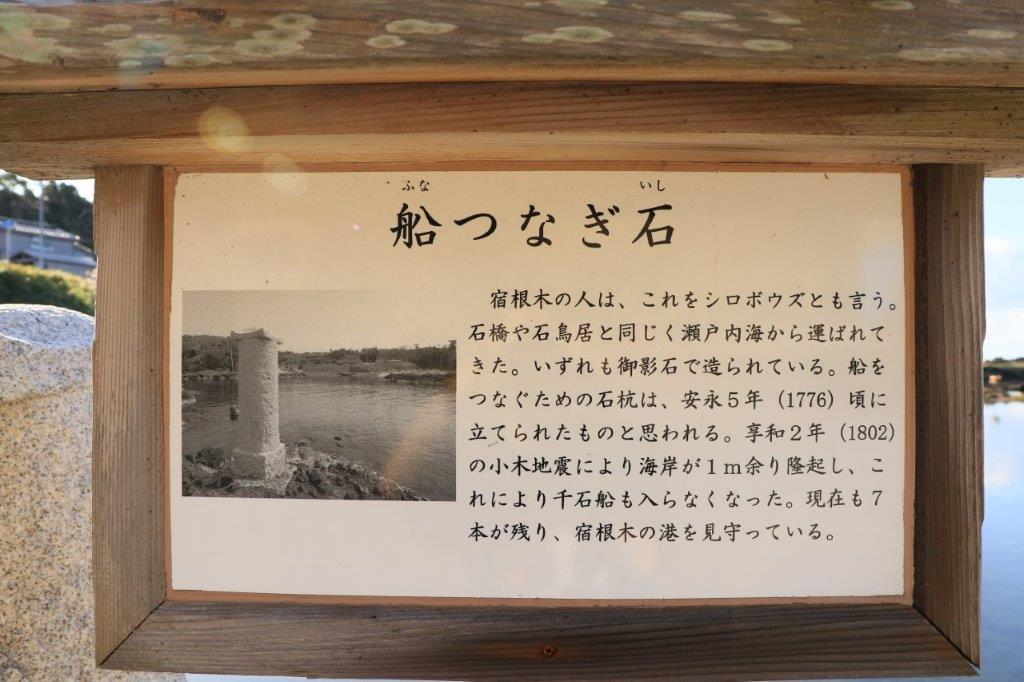 ふな いし
船つなぎ石
宿根木の人は、これをシロボウズとも言う。
石橋や石鳥居と同じく瀬戸内海から運ばれて
きた。いずれも御影石で造られている。船を
つなぐための石杭は、安永5年（1776）頃に
立てられたものと思われる。享和2年（1802）
の小木地震により海岸が1ｍ余り隆起し、こ
れにより千石船も入らなくなった。現在も7
本が残り、宿根木の港を見守っている。